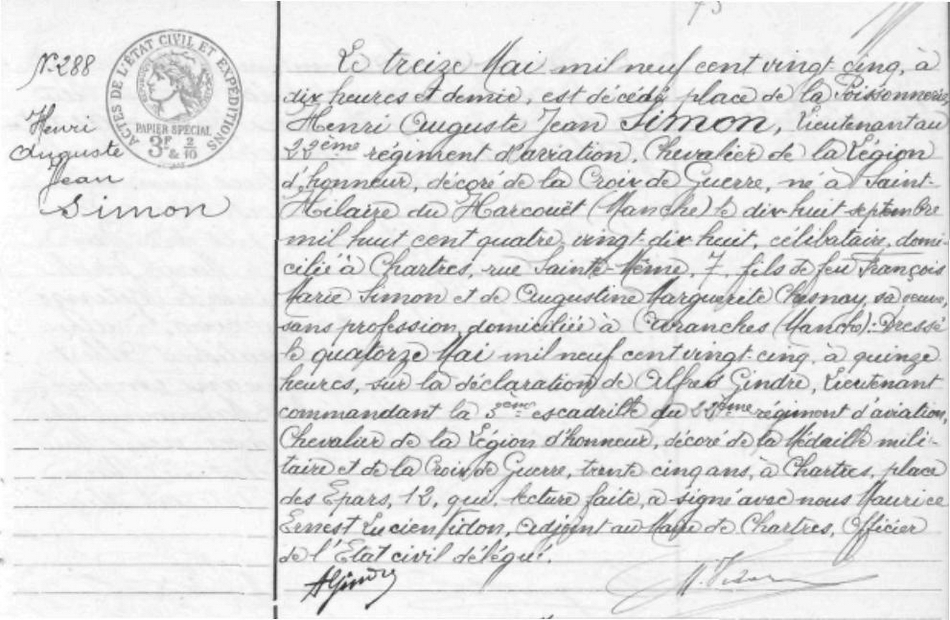 73
N. 288
Henri
Auguste
Jean
Simon
ACTES DE L'ETAT CIVIL ET EXPÉDITIONS
PAPIER SPÉCIAL
3F & 2/10
Le treize Mai mil neuf cent vingt cinq, à
dix heures et demie, est décédé place de la Poissonnerie
Henri Auguste Jean Simon, Lieutenant au
22ème régiment d'aviation, Chevalier de la Légion
d'honneur, décoré de la Croix de Guerre, né à Saint-
Hilaire du Harcouët (Manche) le dix huit septembre
mil huit cent quatre vingt-dix huit, célibataire, domi-
cilié à Chartres, rue Sainte-Même, 7, fils de feu François
Marie Simon et de Augustine Marguerite Chesnay, sa veuve,
sans profession, domiciliée à Avranches (Manche). Dressé
le quatorze Mai mil neuf cent vingt-cinq, à quinze
heures, sur la déclaration de Alfred Gindre, Lieutenant
commandant la escadrille du 22ème régiment d'aviation,
Chevalier de la Légion d'honneur, décoré de la Médaille mili-
taire et de la Croix de Guerre, trente cinq ans, à Chartres, place
des Epars, 12, qui, lecture faite, a signé avec nous Maurice
Ernest Lucien Vidon, Adjoint au Maire de Chartres, Officier
de l'Etat civil délégué.
AGindre